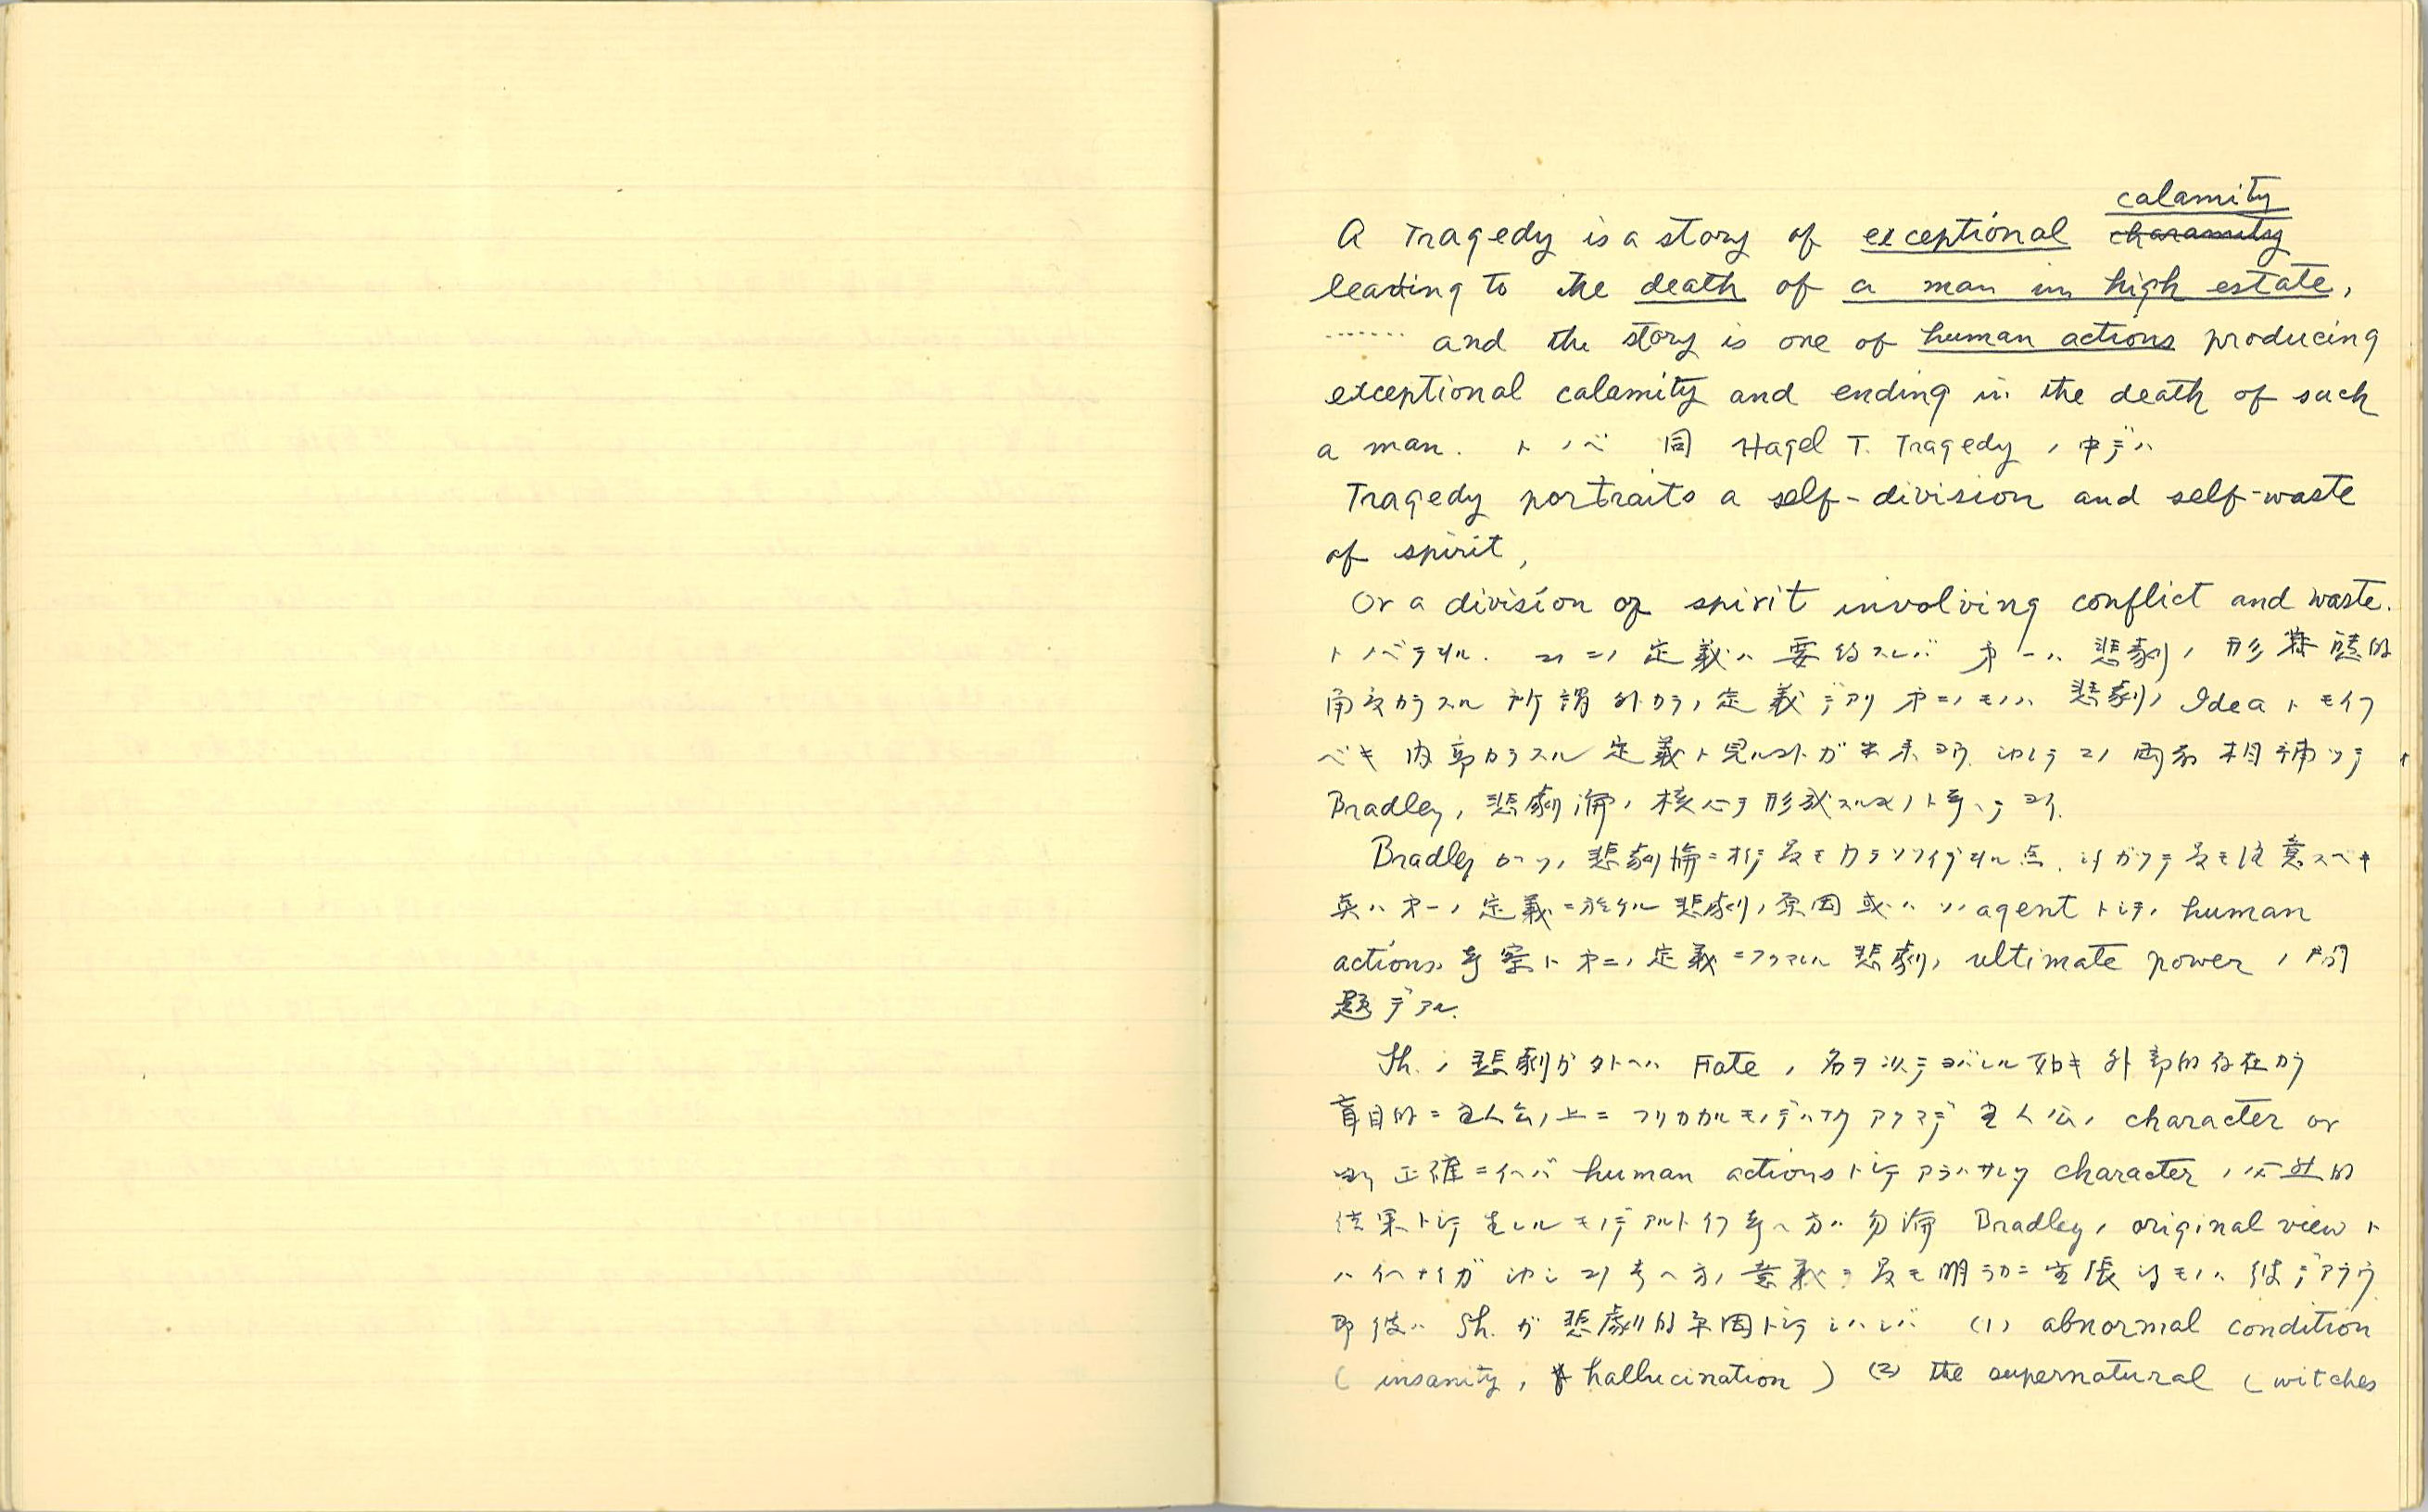 calamity
A Tragedy is a story of exceptional charamity
leading to the death of a man in high estate,
....... and the story is one of human actions producing
exceptional calamity and ending in the death of such
a man. トノベ 同 Hagel T. Tragedy ノ中デハ
Tragedy portraits a self-division and self-waste
of spirit,
Or a division of spirit involving conflict and waste.
トノベテヰル. コノ二ノ定義ハ要約スレバ 才一ハ 悲劇ノ形態的
角度カラスル 所謂外カラノ定義デアリ 才二ノモノハ 悲劇ノ Idea トモイフ
ベキ 内部カラスル 定義ト見ルコトガ出来ヨウ. シカシテコノ両者相補ッテ
Bradleyノ悲劇論ノ核心ヲ形成スルモノト考ヘテヨイ.
Bradley ノ悲劇論ニ於テ最モ 点. シタガツテ最モ注意スベキ
点ハ才一ノ定義ニ於ケル 悲劇ノ原因或ハソノ agent トシテノ human
actionsノ考察ト才二ノ定義ニフクマレル 悲劇ノ ultimate power ノ問
題デアル.
Sh.ノ悲劇ガ Fate ノ名ヲ以テヨバレル如キ外部的存在カラ
盲目的ニ主人公ノ上ニフリカカルモノデハナク アクマデ主人公ノ character or
ヨリ正確ニイヘバ human actions トシテアラハサレタ character ノ必然的
結果トシテ生レルモノデアルトイフ考ヘ方ハ勿論 Bradleyノ original view ト
ハイヘナイガ シカシコノ考ヘ方ノ意義ヲ最モ明ラカニ主張シタモノハ彼デアラウ
即彼ハ Sh. ガ悲劇的原因トシテ (1) abnormal condition
( insanity, hallucination ) (2) the supernatural ( witches